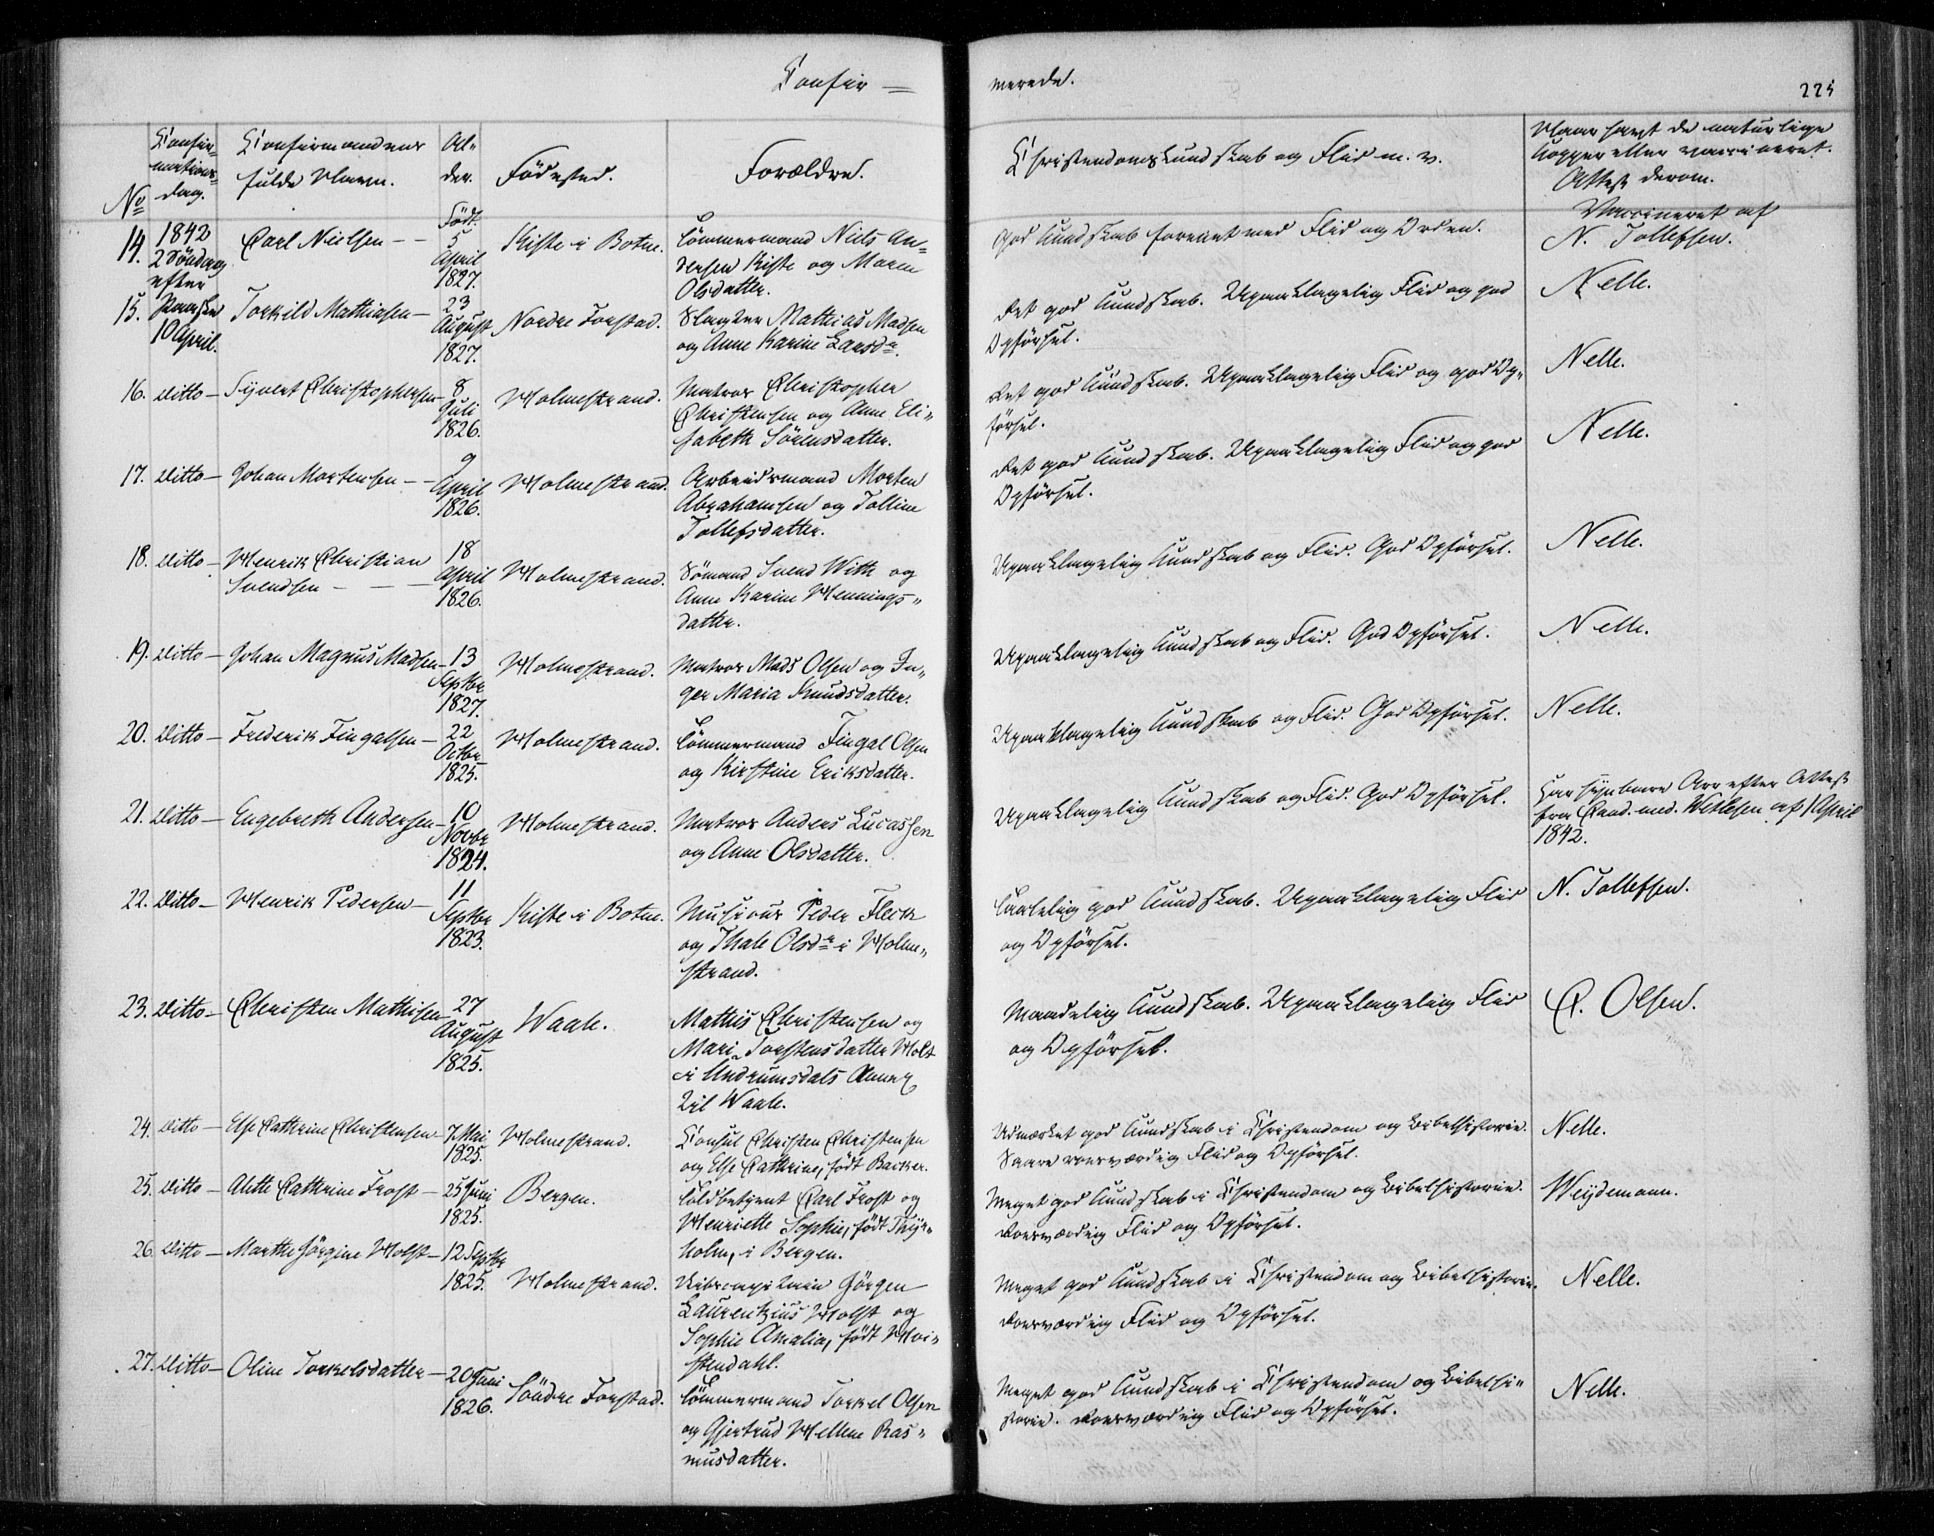 Confir=
merede.
225
No
Confir-
mations-
dag.
Confirmandens
fulde Navn.
Al-
der.
Födested.
Forældre.
Christendomskundskab og Flid m. v.
Naar havt de naturlige
Kopper eller vaccineret.
Attest derom.
14. 1842
2 Söndag
efter
Paaske
10 April.
Carl Nielsen – –
Födt
5
April
1827.
Kiste i Botne.
Tömmermand Niels An-
dersen Kiste og Maren
Olsdatter.
God Kundskab forenet med Flid og Orden.
Vaccineret af
N. Tollefsen.
15.
Torkild Mathiasen –
23
August
1827.
Nordre Torstad.
Slagter Mathias Madsen
og Anne Karine Larsdr.
Ret god Kundskab. Upaaklagelig Flid og god
Opförsel.
N elle.
16. Ditto – Syvert Christophersen –
8
Juli
1826.
Holmestrand.
Matros Christopher
Christensen og Anne Eli-
sabeth Sörensdatter.
Ret god Kundskab. Upaaklagelig Flid og god Op-
försel.
N elle.
17. Ditto – Johan Mortensen – –
9
April
1826.
Holmestrand.
Arbeidsmand Morten
Abrahamsen og Tolline
Tollefsdatter.
Ret god Kundskab. Upaaklagelig Flid og god
Opförsel.
N elle.
18. Ditto – Henrik Christian
Svendsen – –
18
April
1826.
Holmestrand.
Sömand Svend With og
Anne Karine Hennings-
datter.
Upaaklagelig Kundskab og Flid. God Opförsel.
N elle.
19. Ditto – Johan Magnus Madsen –
13
Septbr
1827.
Holmestrand.
Matros Mads Olsen og In-
ger Maria Knudsdatter.
Upaaklagelig Kundskab og Flid. God Opförsel.
N elle.
20. Ditto – Frederik Fingalsen –
22
Octbr
1825.
Holmestrand.
Tömmermand Fingal Olsen
og Kirstine Eriksdatter.
Upaaklagelig Kundskab og Flid. God Opförsel.
N elle.
21. Ditto – Engebreth Andersen –
10
Novbr
1824.
Holmestrand.
Matros Anders Lucassen
og Anne Olsdatter.
Upaaklagelig Kundskab og Flid. God Opförsel.
Har synbare Arr efter Attest
fra Cand. med. Wetlesen af 1 April
1842.
22. Ditto – Henrik Pedersen –
11
Septbr
1823.
Kiste i Botne.
Musicus Peder Fleck
og Thale Olsdr i Holme-
strand.
Taalelig god Kundskab. Upaaklagelig Flid
og Opförsel.
N. Tollefsen.
23. Ditto – Christen Mathisen –
27
August
1825.
Waale.
Mathis Christensen og
Mari Torstensdatter Holt
i Undrumsdals Annex
til Waale.
Maadelig Kundskab. Upaaklagelig Flid
og Opförsel.
C. Olsen.
24. Ditto – Else Cathrine Christensen –
7 Mai
1825.
Holmestrand.
Consul Christen Christensen
og Else Cathrine, födt Backer.
Udmærket god Kundskab i Christendom og Bibelhistorie.
Saare roesværdig Flid og Opförsel.
N elle.
25. Ditto – Alette Cathrine Frost –
25 Juni
1825.
Bergen.
Toldbetjent Carl Frost og
Henriette Sophie, födt Thye-
holm, i Bergen.
Meget god Kundskab i Christendom og Bibelhistorie.
Roesværdig Flid og Opförsel.
Weydemann.
26. Ditto – Marthe Jörgine Holst –
12 Septbr
1825.
Holmestrand.
Skibscapitain Jörgen
Laurentzius Holst og
Sophie Amalia, födt Hvi-
stendahl.
Meget god Kundskab i Christendom og Bibelhistorie.
Roesværdig Flid og Opförsel.
N elle.
27. Ditto – Oline Torkelsdatter –
20 Juni
1826.
Söndre Torstad.
Tömmermand Torkel Olsen
og Gjertrud Hellene Ras-
musdatter.
Meget god Kundskab i Christendom og Bibelhi-
storie. Roesværdig Flid og Opförsel.
N elle.